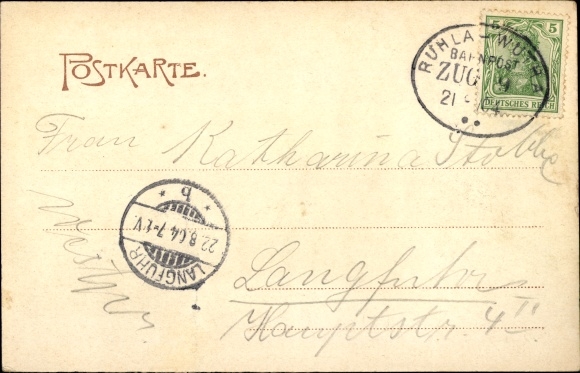 POSTKARTE.
RUHLA-WUTHA
BAHNPOST
ZUG 9
21 8 04
5
DEUTSCHES REICH
Frau Katharina Stobbe
LANGFUHR
22.8.04.7-8V.
* b *
Westpr.
Langfuhr
Hauptstr. 4 II